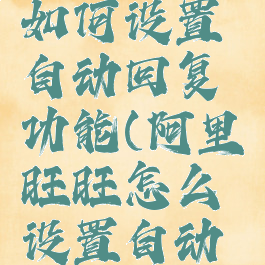 如何设置
自动回复
功能(阿里
旺旺怎么
设置自动